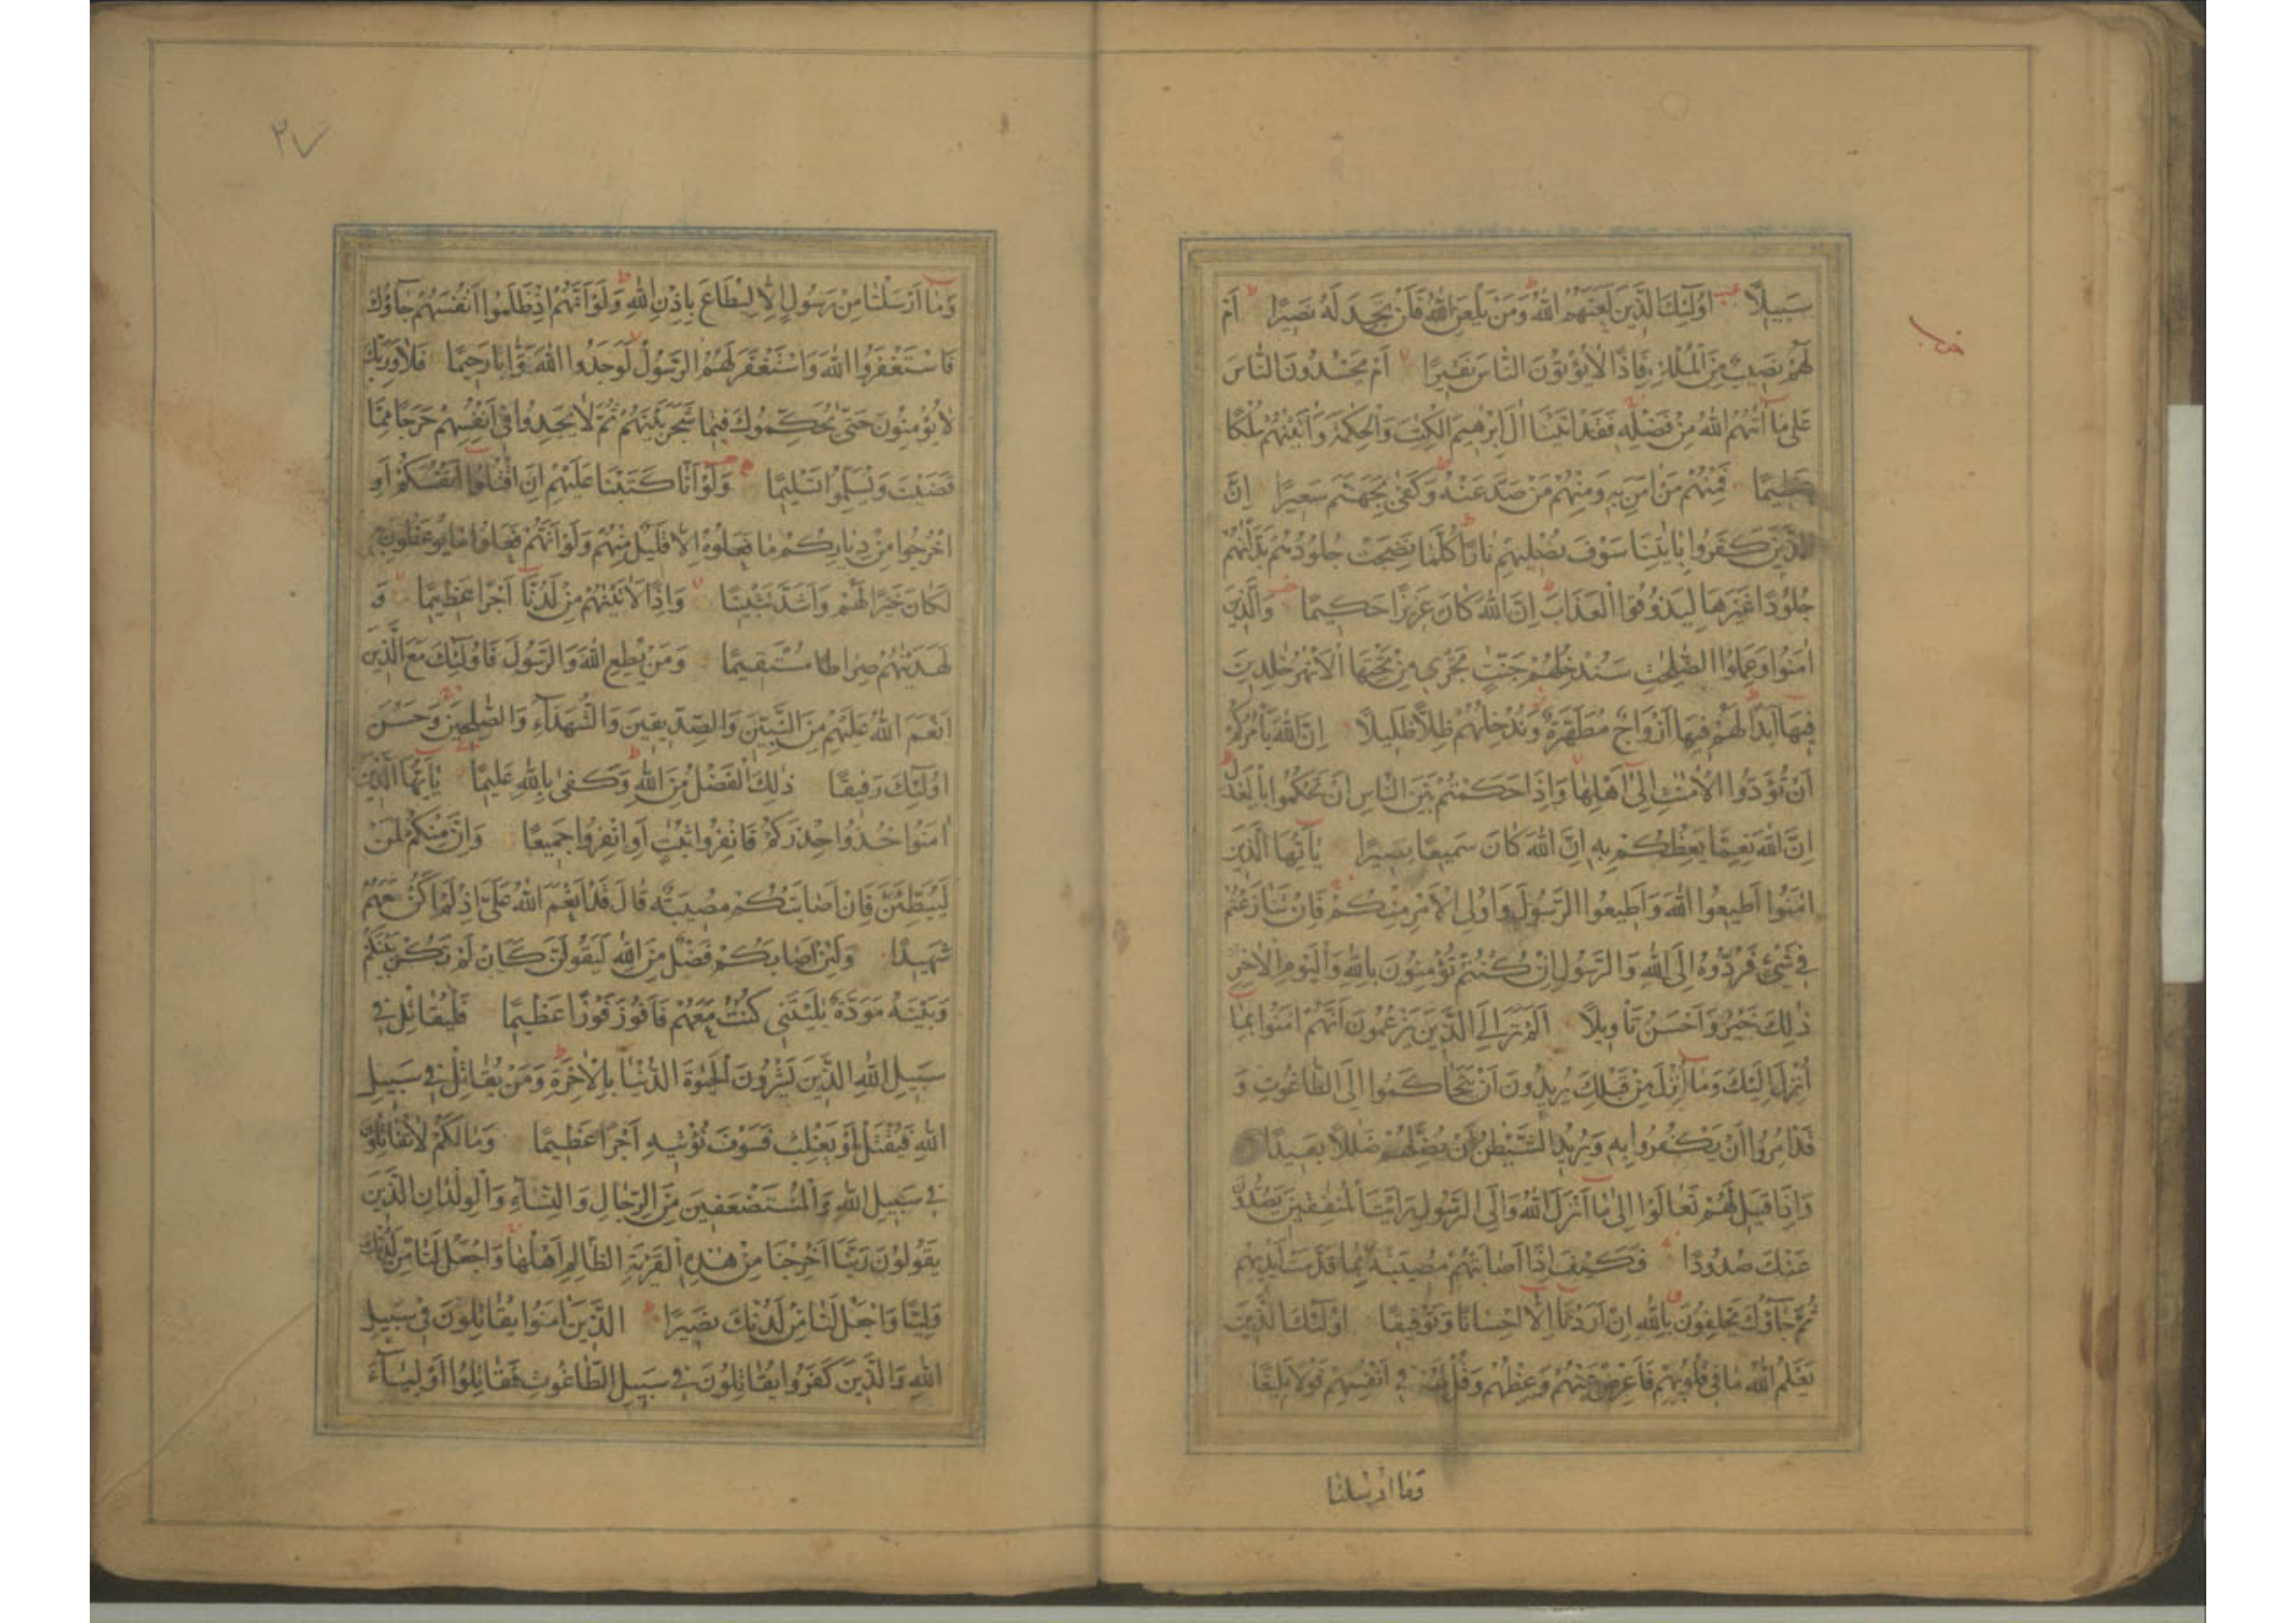 سَبِيلًا اُولٰٓئِكَ الَّذِينَ لَعَنَهُمُ اللهُ وَمَنْ يَلْعَنِ اللهُ فَلَنْ تَجِدَ لَهُ نَصِيرًا اَمْ
لَهُمْ نَصِيبٌ مِنَ الْمُلْكِ فَاِذًا لَا يُؤْتُونَ النَّاسَ نَقِيرًا اَمْ يَحْسُدُونَ النَّاسَ
عَلٰى مَا اٰتٰهُمُ اللهُ مِنْ فَضْلِهِ فَقَدْ اٰتَيْنَا اٰلَ اِبْرٰهِيمَ الْكِتٰبَ وَالْحِكْمَةَ وَاٰتَيْنٰهُمْ مُلْكًا
عَظِيمًا فَمِنْهُمْ مَنْ اٰمَنَ بِهِ وَمِنْهُمْ مَنْ صَدَّ عَنْهُ وَكَفٰى بِجَهَنَّمَ سَعِيرًا اِنَّ
الَّذِينَ كَفَرُوا بِاٰيٰتِنَا سَوْفَ نُصْلِيهِمْ نَارًا كُلَّمَا نَضِجَتْ جُلُودُهُمْ بَدَّلْنٰهُمْ
جُلُودًا غَيْرَهَا لِيَذُوقُوا الْعَذَابَ اِنَّ اللهَ كَانَ عَزِيزًا حَكِيمًا وَالَّذِينَ
اٰمَنُوا وَعَمِلُوا الصّٰلِحٰتِ سَنُدْخِلُهُمْ جَنّٰتٍ تَجْرِي مِنْ تَحْتِهَا الْاَنْهٰرُ خٰلِدِينَ
فِيهَا اَبَدًا لَهُمْ فِيهَا اَزْوَاجٌ مُطَهَّرَةٌ وَنُدْخِلُهُمْ ظِلًّا ظَلِيلًا اِنَّ اللهَ يَأْمُرُكُمْ
اَنْ تُؤَدُّوا الْاَمٰنٰتِ اِلٰى اَهْلِهَا وَاِذَا حَكَمْتُمْ بَيْنَ النَّاسِ اَنْ تَحْكُمُوا بِالْعَدْلِ
اِنَّ اللهَ نِعِمَّا يَعِظُكُمْ بِهِ اِنَّ اللهَ كَانَ سَمِيعًا بَصِيرًا يٰٓاَيُّهَا الَّذِينَ
اٰمَنُوا اَطِيعُوا اللهَ وَاَطِيعُوا الرَّسُولَ وَاُولِي الْاَمْرِ مِنْكُمْ فَاِنْ تَنَازَعْتُمْ
فِي شَيْءٍ فَرُدُّوهُ اِلَى اللهِ وَالرَّسُولِ اِنْ كُنْتُمْ تُؤْمِنُونَ بِاللهِ وَالْيَوْمِ الْاٰخِرِ
ذٰلِكَ خَيْرٌ وَاَحْسَنُ تَأْوِيلًا اَلَمْ تَرَ اِلَى الَّذِينَ يَزْعُمُونَ اَنَّهُمْ اٰمَنُوا بِمَا
اُنْزِلَ اِلَيْكَ وَمَا اُنْزِلَ مِنْ قَبْلِكَ يُرِيدُونَ اَنْ يَتَحَاكَمُوا اِلَى الطَّاغُوتِ وَ
قَدْ اُمِرُوا اَنْ يَكْفُرُوا بِهِ وَيُرِيدُ الشَّيْطٰنُ اَنْ يُضِلَّهُمْ ضَلٰلًا بَعِيدًا
وَاِذَا قِيلَ لَهُمْ تَعَالَوْا اِلٰى مَا اَنْزَلَ اللهُ وَاِلَى الرَّسُولِ رَاَيْتَ الْمُنٰفِقِينَ يَصُدُّونَ
عَنْكَ صُدُودًا فَكَيْفَ اِذَا اَصَابَتْهُمْ مُصِيبَةٌ بِمَا قَدَّمَتْ اَيْدِيهِمْ
ثُمَّ جَآؤُكَ يَحْلِفُونَ بِاللهِ اِنْ اَرَدْنَا اِلَّا اِحْسَانًا وَتَوْفِيقًا اُولٰٓئِكَ الَّذِينَ
يَعْلَمُ اللهُ مَا فِي قُلُوبِهِمْ فَاَعْرِضْ عَنْهُمْ وَعِظْهُمْ وَقُلْ لَهُمْ فِي اَنْفُسِهِمْ قَوْلًا بَلِيغًا
وَمَا اَرْسَلْنَا
٢٧
وَمَا اَرْسَلْنَا مِنْ رَسُولٍ اِلَّا لِيُطَاعَ بِاِذْنِ اللهِ وَلَوْ اَنَّهُمْ اِذْ ظَلَمُوا اَنْفُسَهُمْ جَآؤُكَ
فَاسْتَغْفَرُوا اللهَ وَاسْتَغْفَرَ لَهُمُ الرَّسُولُ لَوَجَدُوا اللهَ تَوَّابًا رَحِيمًا فَلَا وَرَبِّكَ
لَا يُؤْمِنُونَ حَتّٰى يُحَكِّمُوكَ فِيمَا شَجَرَ بَيْنَهُمْ ثُمَّ لَا يَجِدُوا فِي اَنْفُسِهِمْ حَرَجًا مِمَّا
قَضَيْتَ وَيُسَلِّمُوا تَسْلِيمًا وَلَوْ اَنَّا كَتَبْنَا عَلَيْهِمْ اَنِ اقْتُلُوا اَنْفُسَكُمْ اَوِ
اخْرُجُوا مِنْ دِيَارِكُمْ مَا فَعَلُوهُ اِلَّا قَلِيلٌ مِنْهُمْ وَلَوْ اَنَّهُمْ فَعَلُوا مَا يُوعَظُونَ بِهِ
لَكَانَ خَيْرًا لَهُمْ وَاَشَدَّ تَثْبِيتًا وَاِذًا لَاٰتَيْنٰهُمْ مِنْ لَدُنَّا اَجْرًا عَظِيمًا وَ
لَهَدَيْنٰهُمْ صِرَاطًا مُسْتَقِيمًا وَمَنْ يُطِعِ اللهَ وَالرَّسُولَ فَاُولٰٓئِكَ مَعَ الَّذِينَ
اَنْعَمَ اللهُ عَلَيْهِمْ مِنَ النَّبِيِّينَ وَالصِّدِّيقِينَ وَالشُّهَدَآءِ وَالصّٰلِحِينَ وَحَسُنَ
اُولٰٓئِكَ رَفِيقًا ذٰلِكَ الْفَضْلُ مِنَ اللهِ وَكَفٰى بِاللهِ عَلِيمًا يٰٓاَيُّهَا الَّذِينَ
اٰمَنُوا خُذُوا حِذْرَكُمْ فَانْفِرُوا ثُبَاتٍ اَوِ انْفِرُوا جَمِيعًا وَاِنَّ مِنْكُمْ لَمَنْ
لَيُبَطِّئَنَّ فَاِنْ اَصَابَتْكُمْ مُصِيبَةٌ قَالَ قَدْ اَنْعَمَ اللهُ عَلَيَّ اِذْ لَمْ اَكُنْ مَعَهُمْ
شَهِيدًا وَلَئِنْ اَصَابَكُمْ فَضْلٌ مِنَ اللهِ لَيَقُولَنَّ كَاَنْ لَمْ تَكُنْ بَيْنَكُمْ
وَبَيْنَهُ مَوَدَّةٌ يٰلَيْتَنِي كُنْتُ مَعَهُمْ فَاَفُوزَ فَوْزًا عَظِيمًا فَلْيُقَاتِلْ فِي
سَبِيلِ اللهِ الَّذِينَ يَشْرُونَ الْحَيٰوةَ الدُّنْيَا بِالْاٰخِرَةِ وَمَنْ يُقَاتِلْ فِي سَبِيلِ
اللهِ فَيُقْتَلْ اَوْ يَغْلِبْ فَسَوْفَ نُؤْتِيهِ اَجْرًا عَظِيمًا وَمَا لَكُمْ لَا تُقَاتِلُونَ
فِي سَبِيلِ اللهِ وَالْمُسْتَضْعَفِينَ مِنَ الرِّجَالِ وَالنِّسَآءِ وَالْوِلْدَانِ الَّذِينَ
يَقُولُونَ رَبَّنَا اَخْرِجْنَا مِنْ هٰذِهِ الْقَرْيَةِ الظَّالِمِ اَهْلُهَا وَاجْعَلْ لَنَا مِنْ لَدُنْكَ
وَلِيًّا وَاجْعَلْ لَنَا مِنْ لَدُنْكَ نَصِيرًا الَّذِينَ اٰمَنُوا يُقَاتِلُونَ فِي سَبِيلِ
اللهِ وَالَّذِينَ كَفَرُوا يُقَاتِلُونَ فِي سَبِيلِ الطَّاغُوتِ فَقَاتِلُوا اَوْلِيَآءَ